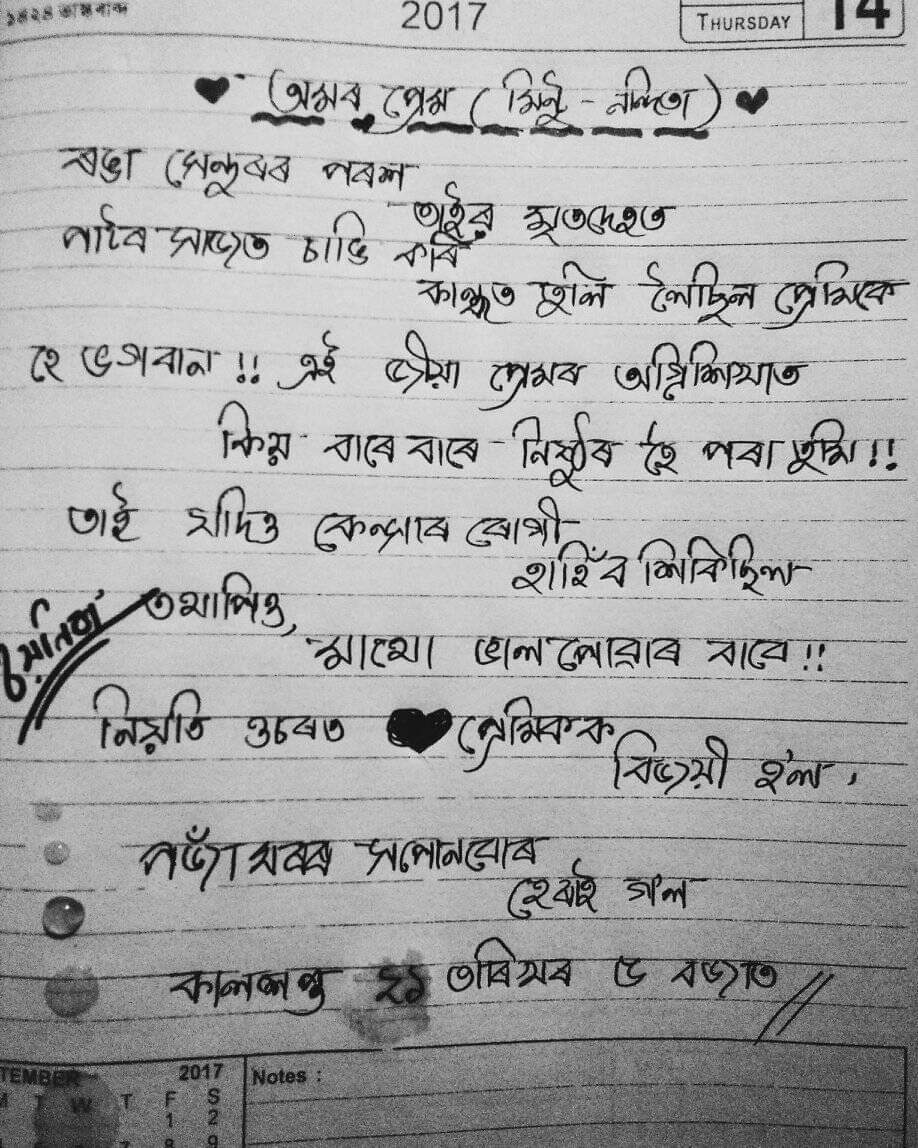 ১৪২৪ ভাস্কৰাব্দ
2017
THURSDAY
14
অমৰ প্ৰেম (মিন্টু - নন্দিতা)
ৰঙা সেন্দুৰৰ পৰল
তাইৰ মৃতদেহত
পাটৰ সাজত চাঙি কৰি
কান্ধত তুলি লৈছিল প্ৰেমিকে
হে ভগবান !! এই জীয়া প্ৰেমৰ অগ্নিশিখাত
কিয় বাৰে বাৰে নিষ্ঠুৰ হৈ পৰা তুমি !!
তাই যদিও কেন্সাৰ ৰোগী
হাঁহিব শিকিছিল
তথাপিও,
মাথো ভাল পোৱাৰ বাবে !!
নিয়তি ওচৰত প্ৰেমিকক
বিজয়ী হ'ল ,
পঁজাঘৰৰ সপোনবোৰ
হেৰাই গ'ল
কাললগ্ন ২১ তাৰিখৰ ৫ বজাত //
TEMBER 2017
M T W T F S
1 2
7 8 9
Notes :